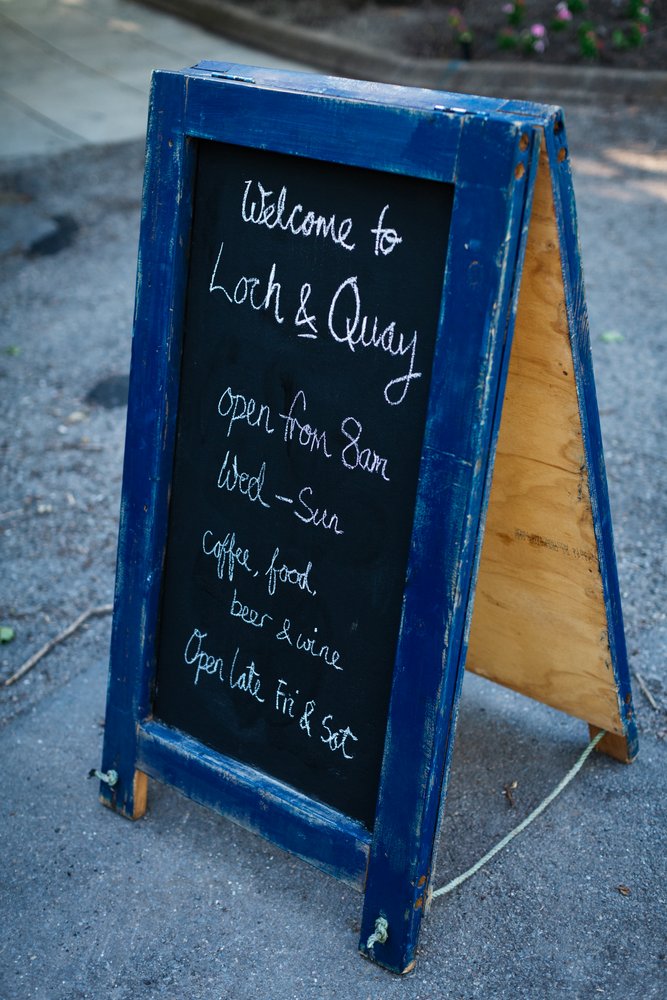 Welcome to
Loch & Quay
open from 8am
Wed – Sun
coffee, food,
beer & wine
Open late Fri & Sat